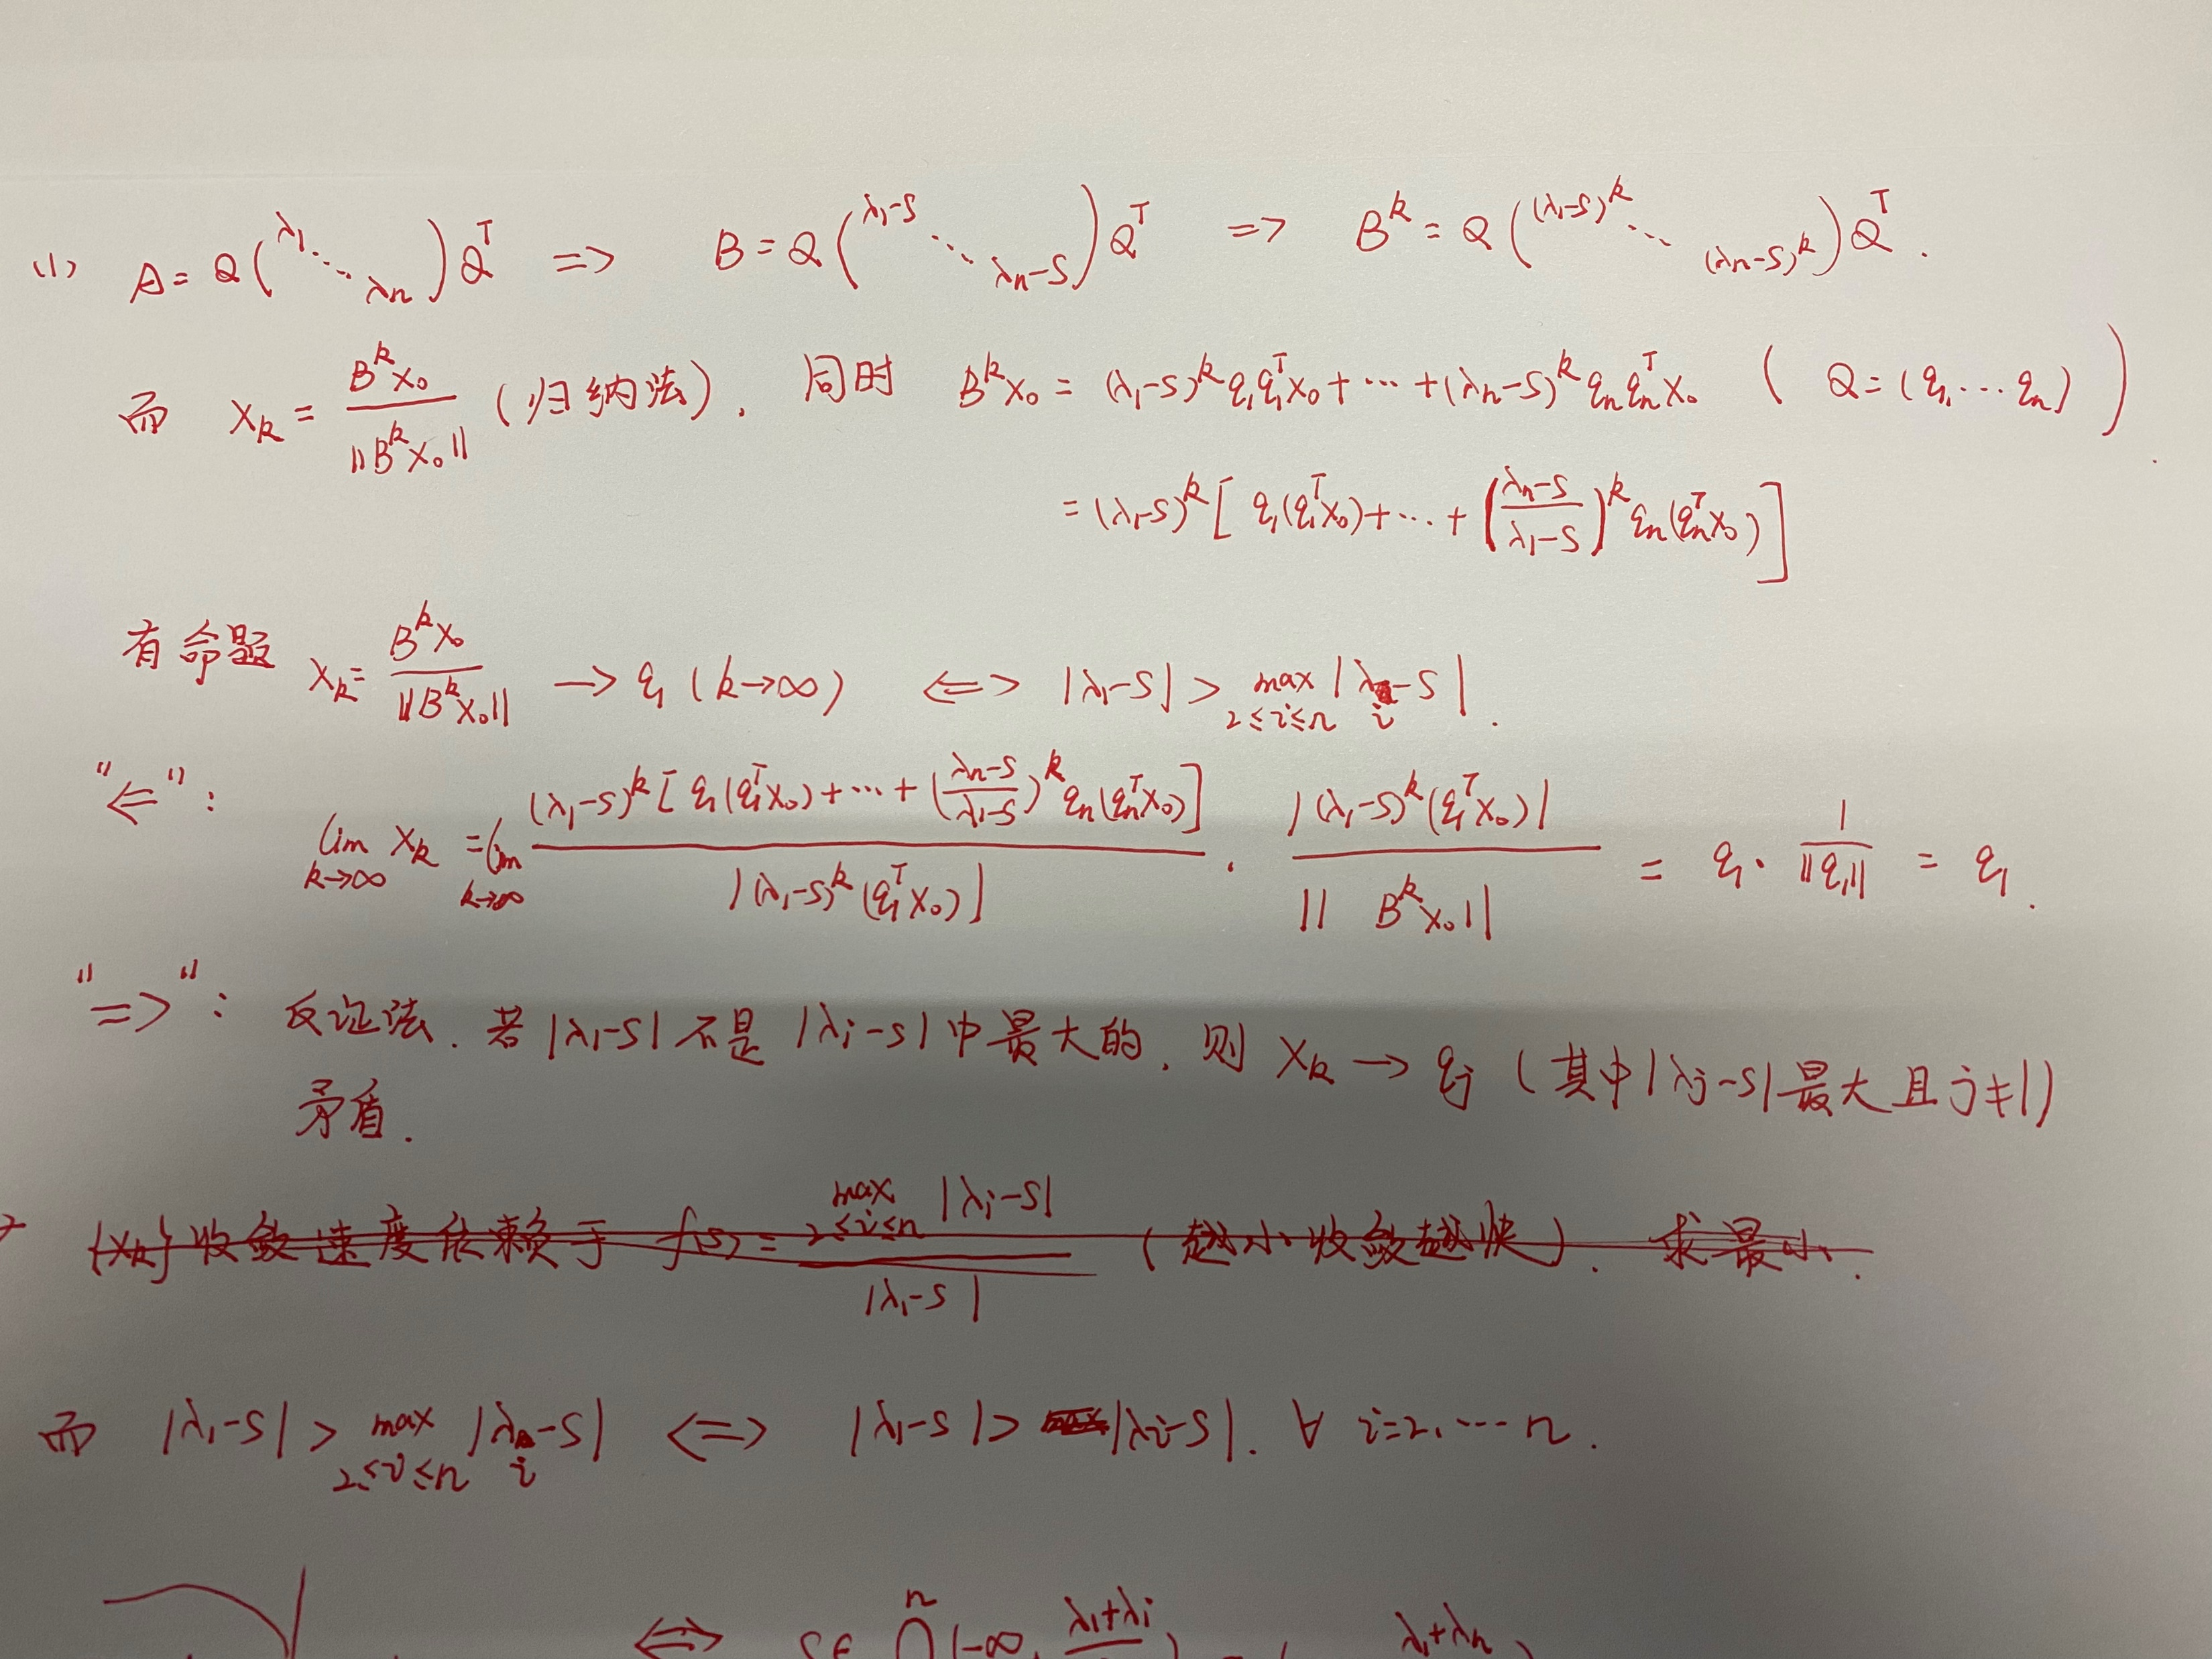 (1) A = Q(λ₁ ⋱ λₙ)Qᵀ => B = Q(λ₁-S ⋱ λₙ-S)Qᵀ => Bᵏ = Q((λ₁-S)ᵏ ⋱ (λₙ-S)ᵏ)Qᵀ.
而 Xₖ = BᵏX₀ / ||BᵏX₀|| (归纳法). 同时 BᵏX₀ = (λ₁-S)ᵏq₁q₁ᵀX₀ + ⋯ + (λₙ-S)ᵏqₙqₙᵀX₀ ( Q = (q₁ ⋯ qₙ) )
= (λ₁-S)ᵏ[ q₁(q₁ᵀX₀) + ⋯ + ((λₙ-S)/(λ₁-S))ᵏ qₙ(qₙᵀX₀) ]
有命题 Xₖ = BᵏX₀ / ||BᵏX₀|| → q₁ (k→∞) <=> |λ₁-S| > max_{2≤i≤n} |λᵢ-S|.
"<=": lim_{k→∞} Xₖ = lim_{k→∞} (λ₁-S)ᵏ[ q₁(q₁ᵀX₀) + ⋯ + ((λₙ-S)/(λ₁-S))ᵏ qₙ(qₙᵀX₀) ] / |(λ₁-S)ᵏ(q₁ᵀX₀)| · |(λ₁-S)ᵏ(q₁ᵀX₀)| / ||BᵏX₀|| = q₁ · 1/||q₁|| = q₁.
"=>": 反证法. 若 |λ₁-S| 不是 |λᵢ-S| 中最大的, 则 Xₖ → qⱼ (其中|λⱼ-S|最大且 j≠1)
矛盾.
{Xₖ} 收敛速度依赖于 f(s) = max_{2≤i≤n} |λᵢ-S| / |λ₁-S| (越小收敛越快). 求最小.
而 |λ₁-S| > max_{2≤i≤n} |λᵢ-S| <=> |λ₁-S| > |λᵢ-S|. ∀ i=2, ⋯ n.
<=> S∈ ⋂ⁿ (-∞, λ₁+λᵢ λ₁+λₙ